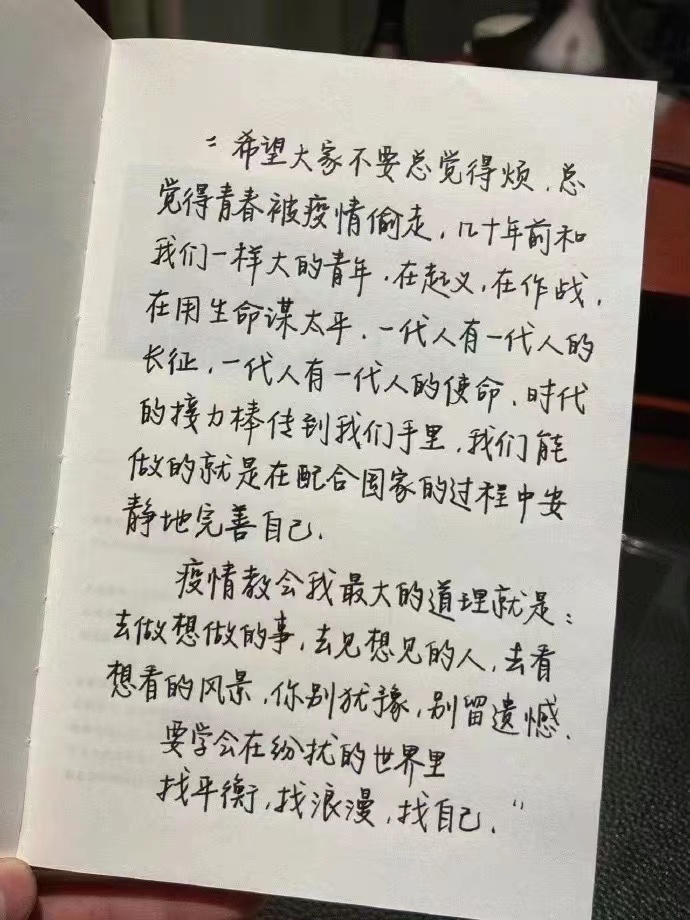 "希望大家不要总觉得烦,总
觉得青春被疫情偷走,几十年前和
我们一样大的青年,在起义,在作战,
在用生命谋太平,一代人有一代人的
长征,一代人有一代人的使命,时代
的接力棒传到我们手里,我们能
做的就是在配合国家的过程中安
静地完善自己.
疫情教会我最大的道理就是:
去做想做的事,去见想见的人,去看
想看的风景,你别犹豫,别留遗憾.
要学会在纷扰的世界里
找平衡,找浪漫,找自己."